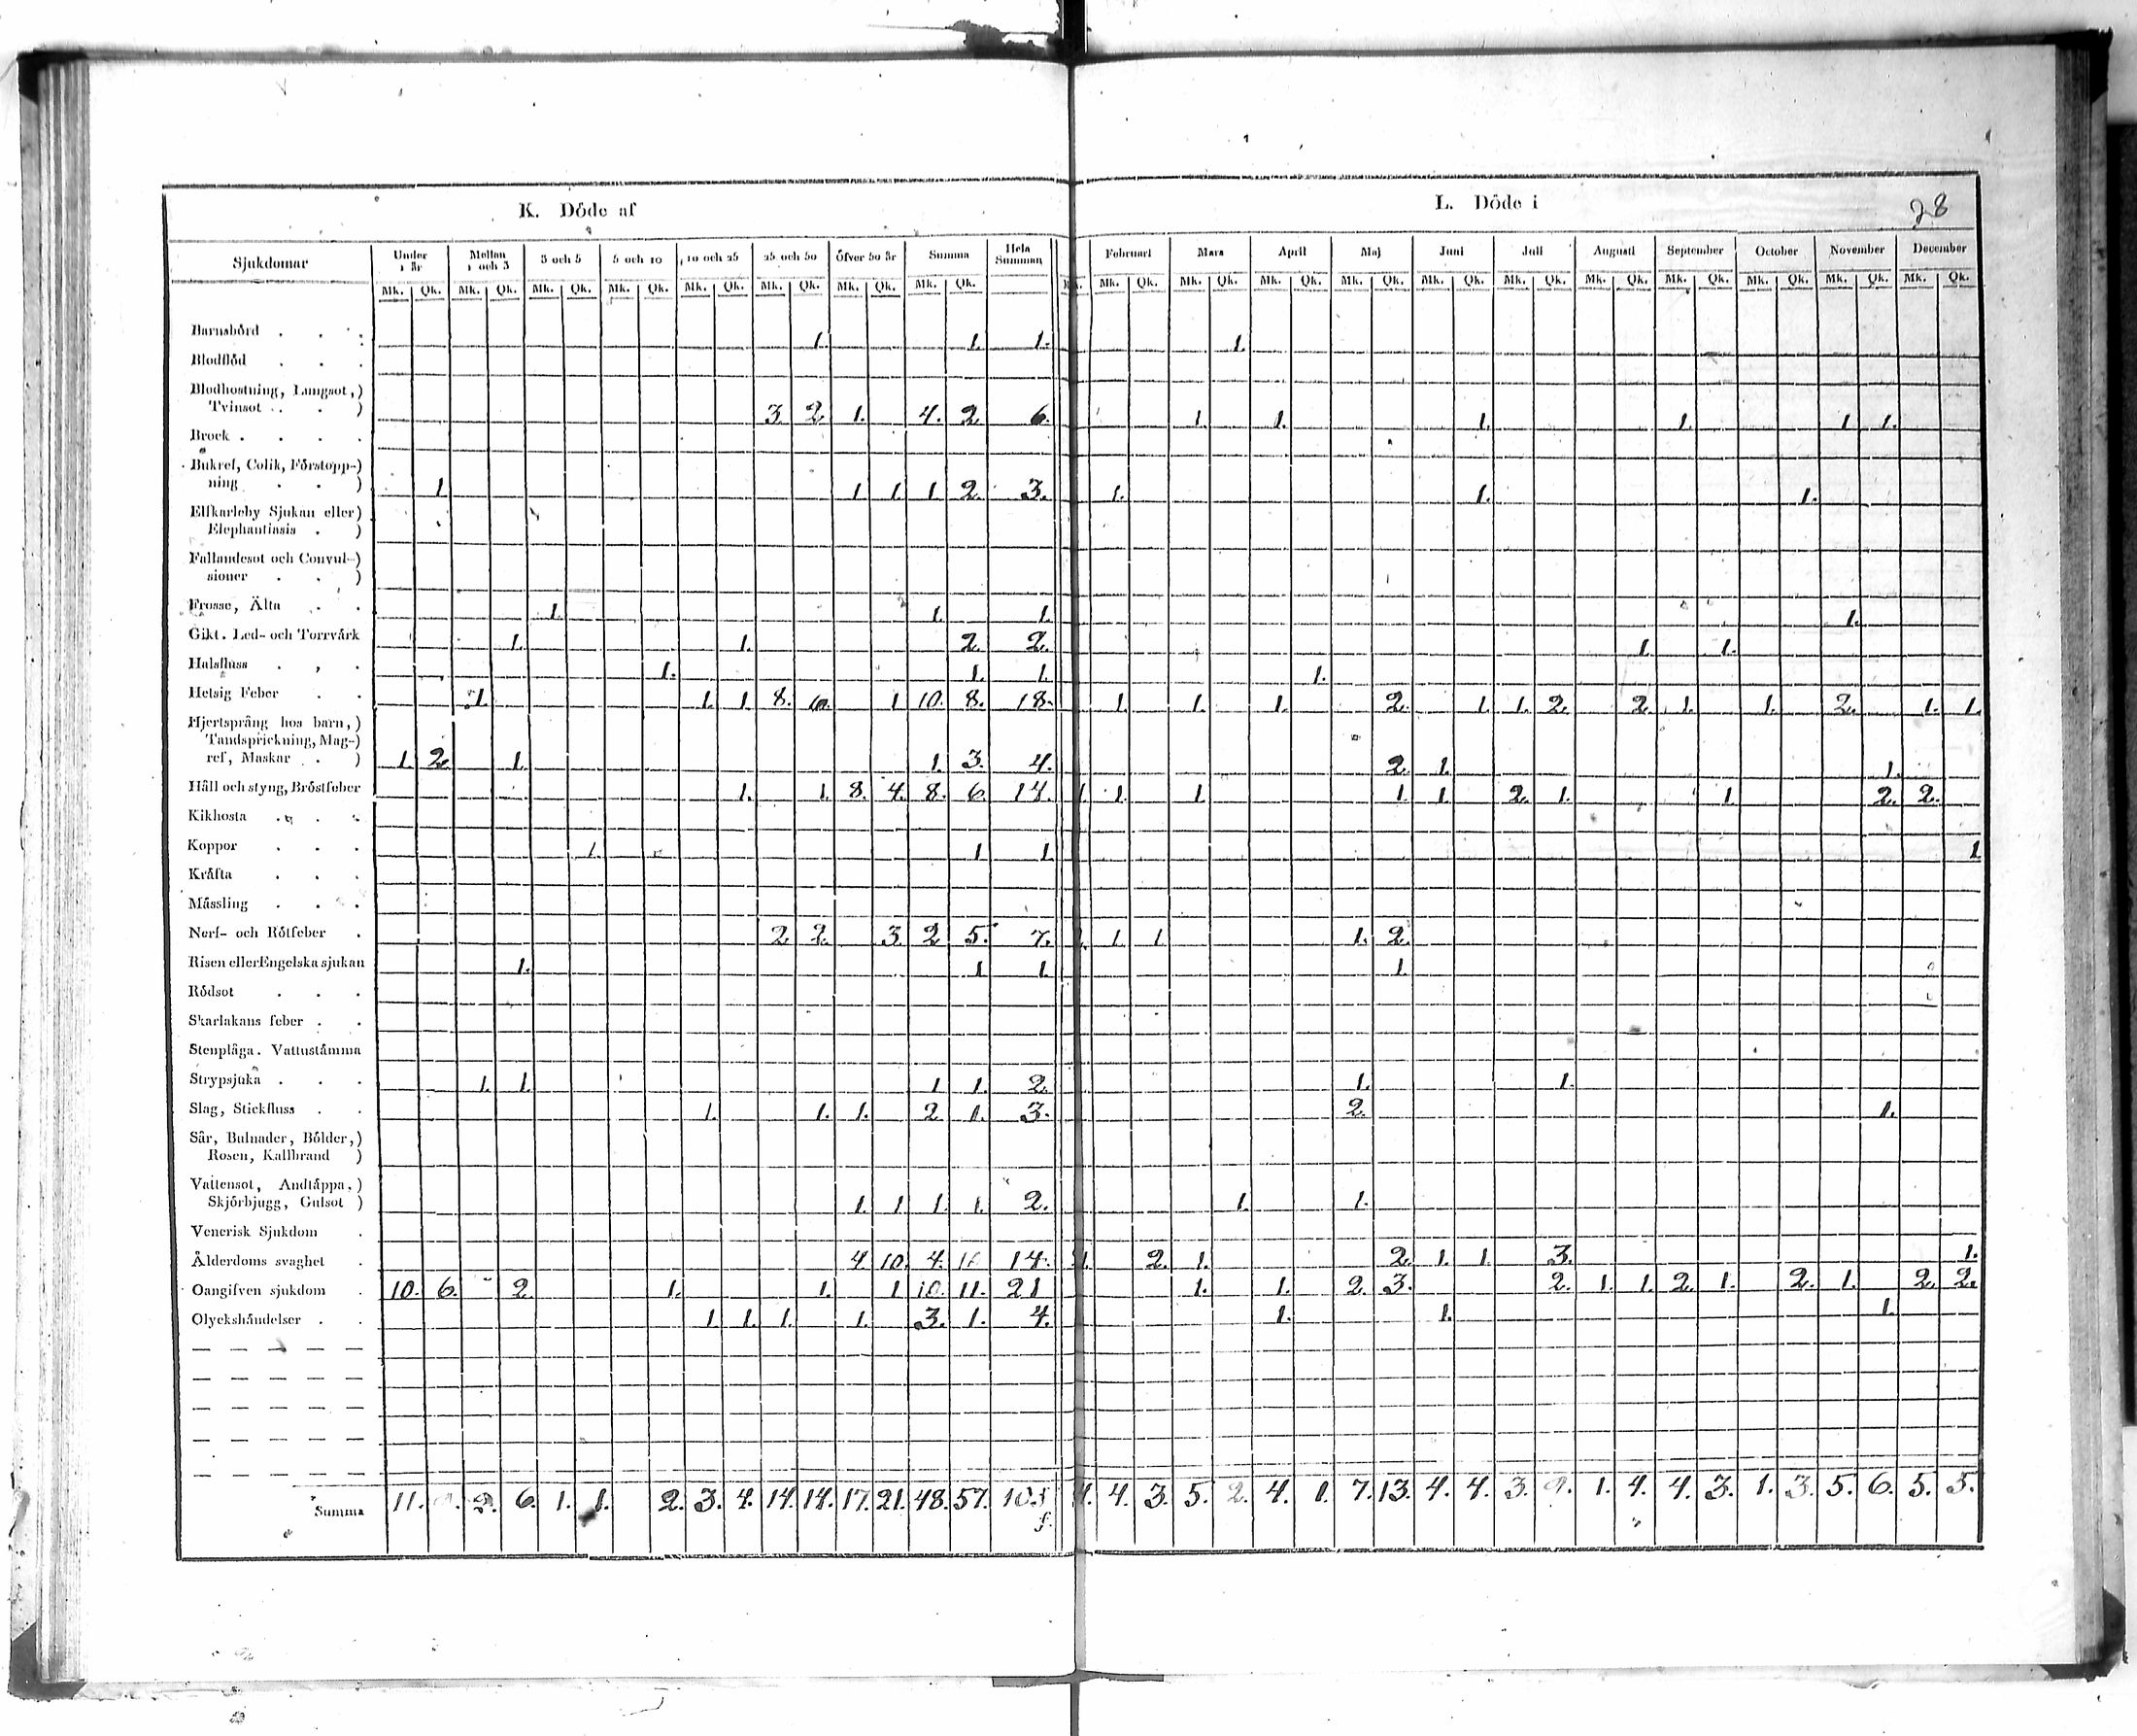 28
K. Döde af
L. Döde i
Sjukdomar Under 1 år Mellan 1 och 3 3 och 5 5 och 10 10 och 25 25 och 50 Öfver 50 år Summa Hela Summan Februari Mars April Maj Juni Juli Augusti September October November December
Mk. Qk. Mk. Qk. Mk. Qk. Mk. Qk. Mk. Qk. Mk. Qk. Mk. Qk. Mk. Qk. Mk. Qk. Mk. Qk. Mk. Qk. Mk. Qk. Mk. Qk. Mk. Qk. Mk. Qk. Mk. Qk. Mk. Qk. Mk. Qk. Mk. Qk.
Barnsbörd . . . 1. 1. 1. 1.
Blodflöd . . .
Blodhostning, Lungsot,)
Tvinsot . . . ) 3. 2. 1. 4. 2. 6. 1. 1. 1. 1. 1. 1.
Brock . . . .
Bukref, Colik, Förstopp-)
ning . . . ) 1. 1. 1. 1. 2. 3. 1. 1. 1.
Elfkarleby Sjukan eller)
Elephantiasis . )
Fallandesot och Convul-)
sioner . . )
Frossa, Älta . . 1. 1. 1. 1.
Gikt. Led- och Torrvårk 1. 1. 2. 2. 1. 1.
Halsfluss . , . 1. 1. 1. 1.
Hetsig Feber . . 1. 1. 1. 8. 1 10. 8. 18. 1. 1. 1. 2. 1. 1. 2. 2. 1. 1. 2. 1. 1.
Hjertsprång hos barn,)
Tandsprickning, Mag-)
ref, Maskar . ) 1. 2. 1. 1. 3. 4. 2. 1. 1.
Håll och styng, Bröstfeber 1. 1. 8. 4. 8. 6. 14. 1. 1. 1. 1. 1. 2. 1. 1. 2. 2.
Kikhosta . . .
Koppor . . . 1. 1 1 1
Kråfta . . .
Mässling . . .
Nerf- och Rötfeber . 2. 2. 3. 2. 5. 7. 1. 1. 1. 1. 2.
Risen eller Engelska sjukan 1. 1 1. 1.
Rödsot . . .
Skarlakans feber . .
Stenplåga. Vattustämma
Strypsjuka . . . 1. 1. 1. 1. 2. 1. 1.
Slag, Stickfluss . . 1. 1. 1. 2. 1. 3. 2. 1.
Sår, Bulnader, Bölder,)
Rosen, Kallbrand )
Vattensot, Andtäppa,)
Skjörbjugg, Gulsot ) 1. 1. 1. 1. 2. 1. 1.
Venerisk Sjukdom .
Ålderdoms svaghet . 4 10. 4. 10. 14. 1. 2. 1. 2. 1. 1. 3. 1.
Oangifven sjukdom . 10. 6. 2. 1. 1. 1 10. 11. 21 1. 1. 2. 3. 2. 1. 1. 2. 1. 2. 1. 2. 2.
Olyckshändelser . . 1. 1. 1. 1. 3. 1. 4. 1. 1. 1.
Summa 11. 2. 6. 1. 1. 2. 3. 4. 14. 14. 17. 21. 48. 57. 105 4. 4. 3. 5. 2. 4. 1. 7. 13. 4. 4. 3. 9. 1. 4. 4. 3. 1. 3. 5. 6. 5. 5.